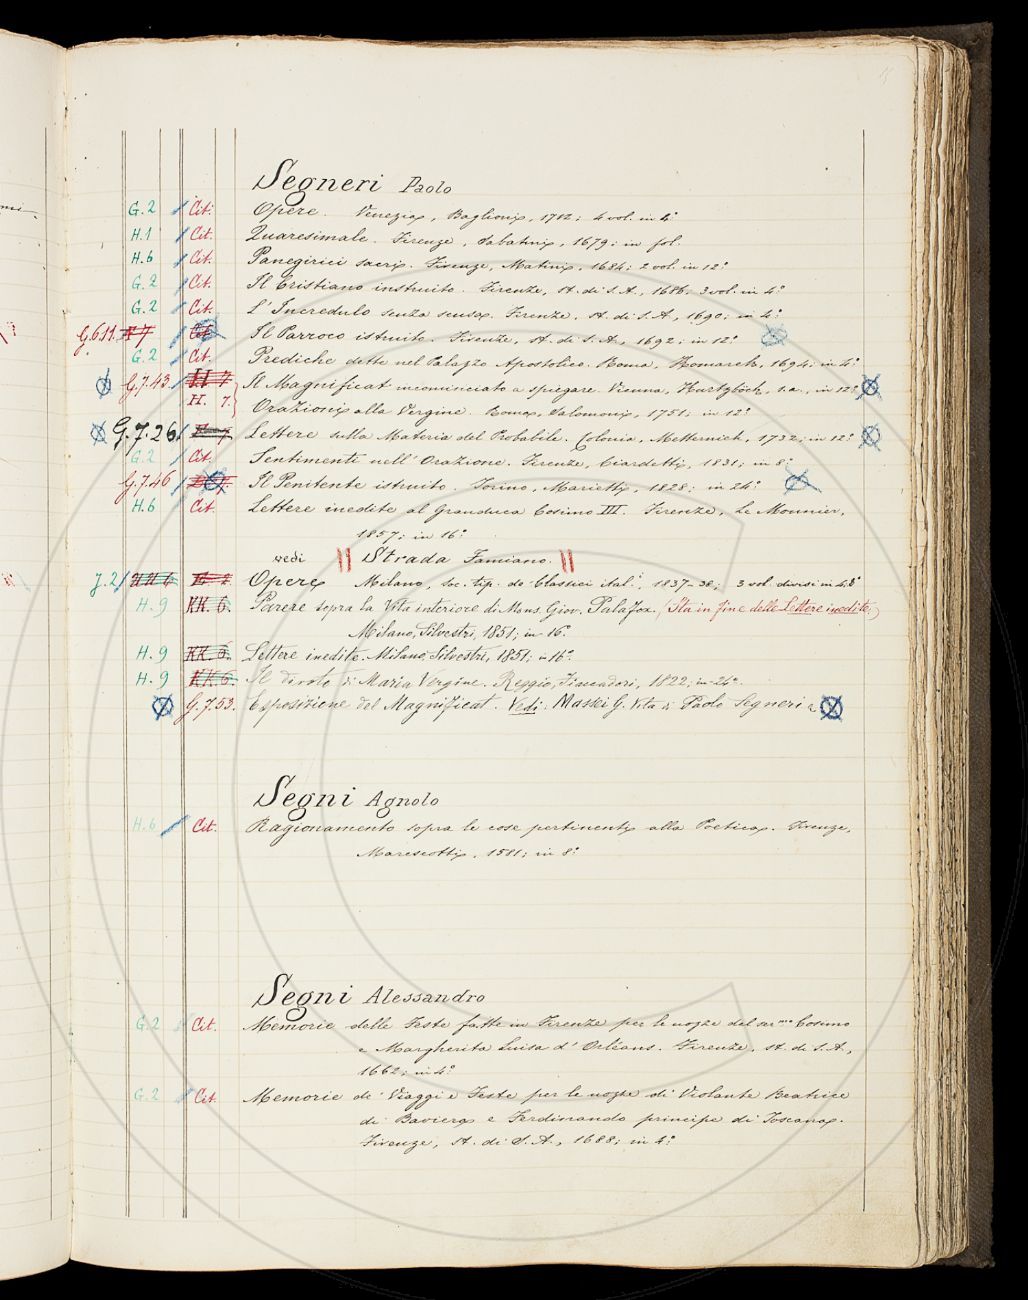 Segneri Paolo
G. 2 Cit. Opere. Venezia, Baglioni, 1712; 4 vol. in 4.°
H. 1 Cit. Quaresimale. Firenze, Sabatini, 1679; in fol.
H. 6 Cit. Panegirici sacri. Firenze, Matini, 1684; 2 vol. in 12.°
G. 2 Cit. Il Cristiano instruito. Firenze, St. di S. A., 1686; 3 vol. in 4.°
G. 2 Cit. L'Incredulo senza scusa. Firenze, St. di S. A., 1690; in 4.°
G.6.11. Il Parroco istruito. Firenze, St. di S. A., 1692; in 12.°
G. 2 Cit. Prediche dette nel Palazzo Apostolico. Roma, Komarek, 1694; in 4.°
G.7.43. H 7 Il Magnificat incominciato a spiegare. Vienna, s. a., in 12.°
H. 7. Orazioni alla Vergine. Roma, Salomoni, 1751; in 12.°
G.7.26 Lettere sulla Materia del Probabile. Colonia, Metternich, 1732; in 12.°
G. 2 Cit. Sentimenti nell'Orazione. Firenze, Ciardetti, 1831; in 8.°
G.7.46 Il Penitente istruito. Torino, Marietti, 1828; in 24.°
H. 6 Cit. Lettere inedite al Granduca Cosimo III. Firenze, Le Monnier,
1857; in 16.°
vedi Strada Famiano.
J. 2 Opere Milano, Soc. tip. de' Classici ital., 1837-38; 3 vol. divisi in 4, 8.°
H. 9 KK. 6. Parere sopra la Vita interiore di Mons. Giov. Palafox. (Sta in fine delle Lettere inedite.)
Milano, Silvestri, 1851; in 16.°
H. 9 KK. 6. Lettere inedite. Milano, Silvestri, 1851; in 16.°
H. 9 KK. 6. Il divoto di Maria Vergine. Reggio, Fiaccadori, 1822; in 24.°
G.7.53. Esposizione del Magnificat. Vedi: Massei G. Vita di Paolo Segneri
Segni Agnolo
H. 6 Cit. Ragionamento sopra le cose pertinenti alla Poetica. Firenze,
Marescotti, 1581; in 8.°
Segni Alessandro
G. 2 Cit. Memorie delle Feste fatte in Firenze per le nozze del ser.mo Cosimo
e Margherita Luisa d'Orléans. Firenze, St. di S. A.,
1662; in 4.°
G. 2 Cit. Memorie de' Viaggi e Feste per le nozze di Violante Beatrice
di Baviera e Ferdinando principe di Toscana.
Firenze, St. di S. A., 1688; in 4.°